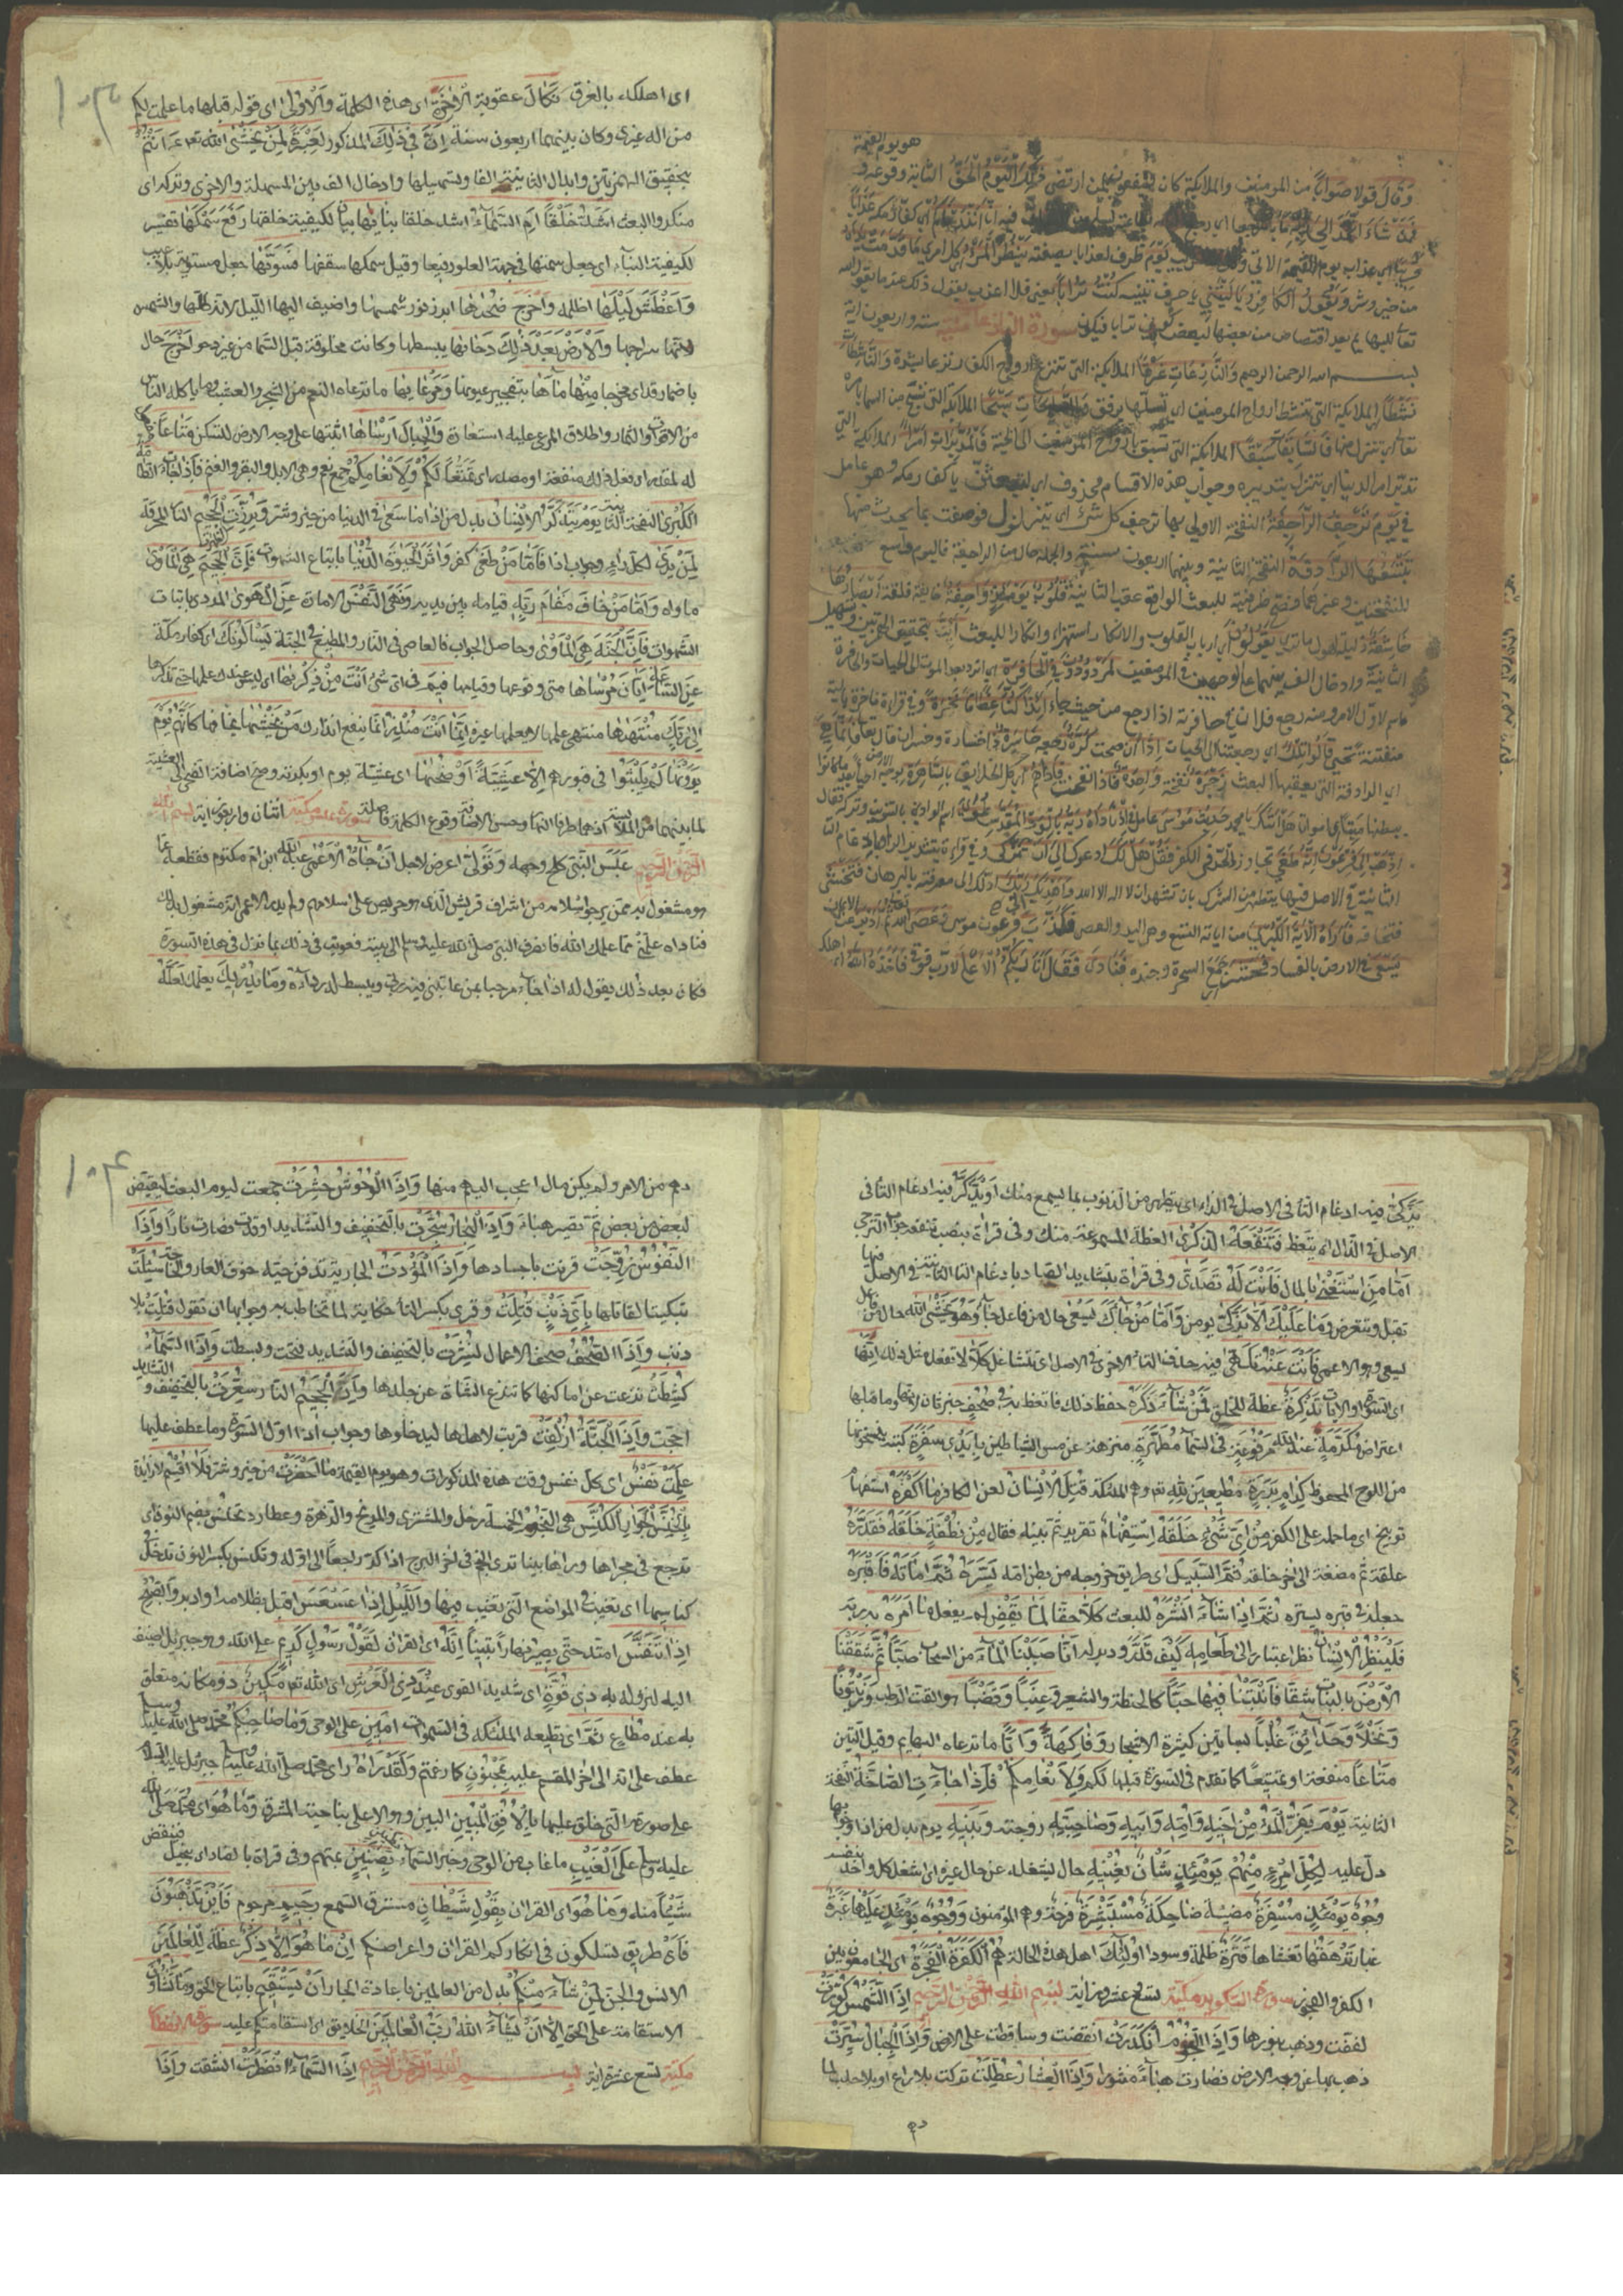 هو يوم القيمة
وَقَالَ قولا صَوَابًا من المومنين والملايكة كان يشفعون لمن ارتضى ذٰلِكَ الْيَوْمُ الْحَقُّ الثابت وقوعه
فَمَنْ شَاءَ اتَّخَذَ اِلٰى رَبِّهِ مَاٰبًا
عذاب يوم القيمة الاتى يَوْمَ ظرف لعذابا بصفته يَنْظُرُ الْمَرْءُ كل امرئ مَا قَدَّمَتْ يَدَاهُ
من خير وشر وَيَقُولُ الْكَافِرُ يَا لَيْتَنِي يا حرف تنبيه كُنْتُ تُرَابًا يعنى فلا اعذب يقول ذلك عند ما يقول الله
تعالى للبهايم بعد اقتصاص من بعضها لبعض كونى ترابا فيكون سورة النازعات مكية ستة واربعون اية
بسم الله الرحمن الرحيم وَالنَّازِعَاتِ غَرْقًا الملايكة التى تنزع ارواح الكفار نزعا بشدة وَالنَّاشِطَاتِ
نَشْطًا الملايكة التى تنشط ارواح المومنين اى تسلها برفق وَالسَّابِحَاتِ سَبْحًا الملايكة التى تسبح من السما بامره
تعالى اى تنزل فَالسَّابِقَاتِ سَبْقًا الملايكة التى تسبق بارواح المومنين الى الجنة فَالْمُدَبِّرَاتِ اَمْرًا الملايكة التى
تدبر امر الدنيا اى تنزل بتدبيره وجواب هذه الاقسام محذوف اى لتبعثن يا كفار مكة وهو عامل
فى يَوْمَ تَرْجُفُ الرَّاجِفَةُ النفخة الاولى بها ترجف كل شئ اى يتزلزل فوصفت بما يحدث منها
تَتْبَعُهَا الرَّادِفَةُ النفخة الثانية وبينهما اربعون سنة والجملة حال من الراجفة فاليوم واسع
للنفختين وغيرهما فصح ظرفيته للبعث الواقع عقب الثانية قُلُوبٌ يَوْمَئِذٍ وَاجِفَةٌ خائفة قلقة اَبْصَارُهَا
خَاشِعَةٌ ذليلة لهول ما ترى يَقُولُونَ اى ارباب القلوب والابصار استهزاء وانكارا للبعث ائنا بتحقيق الهمزتين وتسهيل
الثانية وادخال الف بينهما على الوجهين فى الموضعين لَمَرْدُودُونَ فِي الْحَافِرَةِ اى انرد بعد الموت الى الحيات والحافرة
اسم لاول الامر ومنه رجع فلان فى حافرته اذا رجع من حيث جاء اَئِذَا كُنَّا عِظَامًا نَخِرَةً وفى قراءة ناخرة بالية
متفتتة تحيى قَالُوا تِلْكَ اى رجعتنا الى الحيات اِذًا ان صحت كَرَّةٌ رجعة خَاسِرَةٌ ذات خسران قال تعالى فَاِنَّمَا هِيَ
اى الرادفة التى يعقبها البعث زَجْرَةٌ نفخة وَاحِدَةٌ فاذا نفخت فَاِذَا هُمْ اى كل الخلايق بِالسَّاهِرَةِ بوجه الارض احيا بعد ما كانوا
ببطنها امواتا هَلْ اَتَاكَ يا محمد حَدِيثُ مُوسٰى عامل فى اِذْ نَادَاهُ رَبُّهُ بِالْوَادِ الْمُقَدَّسِ طُوًى اسم الوادى بالتنوين وتركه فقال
اِذْهَبْ اِلٰى فِرْعَوْنَ اِنَّهُ طَغٰى تجاوز الحد فى الكفر فَقُلْ هَلْ لَكَ ادعوك اِلٰى اَنْ تَزَكّٰى وفى قراءة بتشديد الزاى بادغام التا
الثانية فى الاصل فيها تتطهر من الشرك بان تشهد ان لا اله الا الله وَاَهْدِيَكَ اِلٰى رَبِّكَ ادلك الى معرفته بالبرهان فَتَخْشٰى
فتخافه فَاَرَاهُ الْاٰيَةَ الْكُبْرٰى من اياته التسع وهى اليد والعصا فَكَذَّبَ فرعون موسى وَعَصٰى الله ثُمَّ اَدْبَرَ عن الايمان
يَسْعٰى فى الارض بالفساد فَحَشَرَ جمع السحرة وجنده فَنَادٰى فَقَالَ اَنَا رَبُّكُمُ الْاَعْلٰى لا رب فوقى فَاَخَذَهُ اللهُ اهلكه
١٠٣
اى اهلكه بالغرق نَكَالَ عقوبة الْاٰخِرَةِ اى هذه الكلمة وَالْاُولٰى اى قوله قبلها ما علمت لكم
من اله غيرى وكان بينهما اربعون سنة اِنَّ فِي ذٰلِكَ المذكور لَعِبْرَةً لِمَنْ يَخْشٰى الله تعم ءَاَنْتُمْ
بتحقيق الهمزتين وابدال الثانية الفا وتسهيلها وادخال الف بين المسهلة والاخرى وتركه اى
منكروا البعث اَشَدُّ خَلْقًا اَمِ السَّمَاءُ اشد خلقا بَنَاهَا بيان لكيفية خلقها رَفَعَ سَمْكَهَا تفسير
لكيفية البناء اى جعل سمتها فى جهة العلو رفيعا وقيل سمكها سقفها فَسَوّٰيهَا جعل مستوية بلا عيب
وَاَغْطَشَ لَيْلَهَا اظلمه وَاَخْرَجَ ضُحٰيهَا ابرز نور شمسها واضيف اليها الليل لانه ظلها والشمس
لانها سراجها وَالْاَرْضَ بَعْدَ ذٰلِكَ دَحٰيهَا بسطها وكانت مخلوقة قبل السما من غير دحو اَخْرَجَ حال
باضمار قد اى مخرجا مِنْهَا مَاءَهَا بتفجير عيونها وَمَرْعٰيهَا ما ترعاه النعم من الشجر والعشب وما ياكله الناس
من الاقوات والثمار واطلاق المرعى عليه استعارة وَالْجِبَالَ اَرْسٰاهَا اثبتها على وجه الارض لتسكن مَتَاعًا مفعول
له لمقدر اى فعل ذلك متعة او مصدر اى تمتيعا لَكُمْ وَلِاَنْعَامِكُمْ جمع نعم وهى الابل والبقر والغنم فَاِذَا جَاءَتِ الطَّامَّةُ
الْكُبْرٰى النفخة الثانية يَوْمَ يَتَذَكَّرُ الْاِنْسَانُ بدل من اذا مَا سَعٰى فى الدنيا من خير وشر وَبُرِّزَتِ الْجَحِيمُ النار المحرقة
لِمَنْ يَرٰى لكل راء وجواب اذا فَاَمَّا مَنْ طَغٰى كفر وَاٰثَرَ الْحَيٰوةَ الدُّنْيَا باتباع الشهوات فَاِنَّ الْجَحِيمَ هِيَ الْمَاْوٰى
ماواه وَاَمَّا مَنْ خَافَ مَقَامَ رَبِّهِ قيامه بين يديه وَنَهَى النَّفْسَ الامارة عَنِ الْهَوٰى المردى باتباع
الشهوات فَاِنَّ الْجَنَّةَ هِيَ الْمَاْوٰى وحاصل الجواب فالعاصى فى النار والمطيع فى الجنة يَسْاَلُونَكَ اى كفار مكة
عَنِ السَّاعَةِ اَيَّانَ مُرْسٰاهَا متى وقوعها وقيامها فِيمَ فى اى شئ اَنْتَ مِنْ ذِكْرٰيهَا اى ليس عندك علمها حتى تذكرها
اِلٰى رَبِّكَ مُنْتَهٰيهَا منتهى علمها لا يعلمها غيره اِنَّمَا اَنْتَ مُنْذِرُ انما ينفع انذارك مَنْ يَخْشٰيهَا يخافها كَاَنَّهُمْ يَوْمَ
يَرَوْنَهَا لَمْ يَلْبَثُوا فى قبورهم اِلَّا عَشِيَّةً اَوْ ضُحٰيهَا اى عشية يوم او بكرته وصح اضافة الضحى الى العشية
لما بينهما من الملابسة اذ هما طرفا النهار وحسن الاضافة وقوع الكلمة فاصلة سورة عبس مكية اثنان واربعون اية بسم الله
الرحمن الرحيم عَبَسَ النبى كلح وجهه وَتَوَلّٰى اعرض لاجل اَنْ جَاءَهُ الْاَعْمٰى عبد الله ابن ام مكتوم فقطعه عما
هو مشغول به ممن يرجوا سلامه من اشراف قريش الذى هو حريص على اسلامهم ولم يدر الاعمى انه مشغول بذلك
فناداه علمنى مما علمك الله فانصرف النبى صلى الله عليه وسلم الى بيته فعوتب فى ذلك بما نزل فى هذه السورة
فكان بعد ذلك يقول له اذا جاء مرحبا بمن عاتبنى فيه ربى ويبسط له رداءه وَمَا يُدْرِيكَ يعلمك لَعَلَّهُ
يَزَّكّٰى فيه ادغام التاء فى الاصل فى الزاء اى يتطهر من الذنوب بما يسمع منك اَوْ يَذَّكَّرُ فيه ادغام التا فى
الاصل فى الذال اى يتعظ فَتَنْفَعَهُ الذِّكْرٰى العظة المسموعة منك وفى قراءة بنصب تنفعه جواب الترجى
اَمَّا مَنِ اسْتَغْنٰى بالمال فَاَنْتَ لَهُ تَصَدّٰى وفى قراة بتشديد الصاد بادغام التا الثانية فى الاصل فيها
تقبل وتتعرض وَمَا عَلَيْكَ اَلَّا يَزَّكّٰى يومن وَاَمَّا مَنْ جَاءَكَ يَسْعٰى حال من فاعل جاء وَهُوَ يَخْشٰى الله حال من فاعل
يسعى وهو الاعمى فَاَنْتَ عَنْهُ تَلَهّٰى فيه حذف التاء الاخرى فى الاصل اى تتشاغل كَلَّا لا تفعل مثل ذلك اِنَّهَا
اى السورة او الايات تَذْكِرَةٌ عظة للخلق فَمَنْ شَاءَ ذَكَرَهُ حفظ ذلك فاتعظ به فِي صُحُفٍ خبر ثان لانها وما قبلها
اعتراض مُكَرَّمَةٍ عند الله مَرْفُوعَةٍ فى السما مُطَهَّرَةٍ منزهة عن مس الشياطين بِاَيْدِي سَفَرَةٍ كتبة ينسخونها
من اللوح المحفوظ كِرَامٍ بَرَرَةٍ مطيعين لله تعم وهم الملئكة قُتِلَ الْاِنْسَانُ لعن الكافر مَا اَكْفَرَهُ استفهام
توبيخ اى ما حمله على الكفر مِنْ اَيِّ شَيْءٍ خَلَقَهُ استفهام تقرير ثم بينه فقال مِنْ نُطْفَةٍ خَلَقَهُ فَقَدَّرَهُ
علقة ثم مضغة الى اخر خلقه ثُمَّ السَّبِيلَ اى طريق خروجه من بطن امه يَسَّرَهُ ثُمَّ اَمَاتَهُ فَاَقْبَرَهُ
جعله فى قبره يستره ثُمَّ اِذَا شَاءَ اَنْشَرَهُ للبعث كَلَّا حقا لَمَّا يَقْضِ لم يفعل مَا اَمَرَهُ به ربه
فَلْيَنْظُرِ الْاِنْسَانُ نظر اعتبار اِلٰى طَعَامِهِ كيف قدر ودبر له اَنَّا صَبَبْنَا الْمَاءَ من السحاب صَبًّا ثُمَّ شَقَقْنَا
الْاَرْضَ بالنبات شَقًّا فَاَنْبَتْنَا فِيهَا حَبًّا كالحنطة والشعير وَعِنَبًا وَقَضْبًا هو القت الرطب وَزَيْتُونًا
وَنَخْلًا وَحَدَائِقَ غُلْبًا بساتين كثيرة الاشجار وَفَاكِهَةً وَاَبًّا ما ترعاه البهايم وقيل التبن
مَتَاعًا متعة او تمتيعا كما تقدم فى السورة قبلها لَكُمْ وَلِاَنْعَامِكُمْ فَاِذَا جَاءَتِ الصَّاخَّةُ النفخة
الثانية يَوْمَ يَفِرُّ الْمَرْءُ مِنْ اَخِيهِ وَاُمِّهِ وَاَبِيهِ وَصَاحِبَتِهِ زوجته وَبَنِيهِ يوم بدل من اذا وجوابها
دل عليه لِكُلِّ امْرِئٍ مِنْهُمْ يَوْمَئِذٍ شَأْنٌ يُغْنِيهِ حال يشغله عن حال غيره اى اشغل كل واحد بنفسه
وُجُوهٌ يَوْمَئِذٍ مُسْفِرَةٌ مضيئة ضَاحِكَةٌ مُسْتَبْشِرَةٌ فرحة وهم المؤمنون وَوُجُوهٌ يَوْمَئِذٍ عَلَيْهَا غَبَرَةٌ
غبار تَرْهَقُهَا تغشاها قَتَرَةٌ ظلمة وسواد اُولٰئِكَ اهل هذه الحالة هُمُ الْكَفَرَةُ الْفَجَرَةُ اى الجامعون بين
الكفر والفجور سورة التكوير مكية تسع عشرون اية بسم الله الرحمن الرحيم اِذَا الشَّمْسُ كُوِّرَتْ
لففت وذهب بنورها وَاِذَا النُّجُومُ انْكَدَرَتْ انقضت وتساقطت على الارض وَاِذَا الْجِبَالُ سُيِّرَتْ
ذهب بها عن وجه الارض فصارت هباء منثورا وَاِذَا الْعِشَارُ عُطِّلَتْ تركت بلا راع او بلا حلب لما
دهم
١٠٤
دهم من الامر ولم يكن مال اعجب اليهم منها وَاِذَا الْوُحُوشُ حُشِرَتْ جمعت ليوم البعث ليقتص
لبعض من بعض ثم تصير هباء وَاِذَا الْبِحَارُ سُجِّرَتْ بالتخفيف والتشديد اوقدت فصارت نارا وَاِذَا
النُّفُوسُ زُوِّجَتْ قرنت باجسادها وَاِذَا الْمَوْءُدَةُ الجارية تدفن حية خوف العار والحاجة سُئِلَتْ
تبكيتا لقاتلها بِاَيِّ ذَنْبٍ قُتِلَتْ وقرى بكسر التا حكاية لما تخاطب به وجوابها ان تقول قتلت بلا
ذنب وَاِذَا الصُّحُفُ صحف الاعمال نُشِرَتْ بالتخفيف والتشديد فتحت وبسطت وَاِذَا السَّمَاءُ
كُشِطَتْ نزعت عن اماكنها كما تنزع الشاة عن جلدها وَاِذَا الْجَحِيمُ النار سُعِّرَتْ بالتخفيف والتشديد
اججت وَاِذَا الْجَنَّةُ اُزْلِفَتْ قربت لاهلها ليدخلوها وجواب اذا اول السورة وما عطف عليها
عَلِمَتْ نَفْسٌ اى كل نفس وقت هذه المذكورات وهو يوم القيمة مَا اَحْضَرَتْ من خير وشر فَلَا اُقْسِمُ لا زائدة
بِالْخُنَّسِ الْجَوَارِ الْكُنَّسِ هى النجوم الخمسة زحل والمشترى والمريخ والزهرة وعطارد تخنس بضم النون اى
ترجع فى مجراها وراها بينا ترى النجم فى اخر البرج اذ كر راجعا الى اوله وتكنس بكسر النون تدخل
كناسها اى تغيب فى المواضع التى تغيب فيها وَاللَّيْلِ اِذَا عَسْعَسَ اقبل بظلامه او ادبر وَالصُّبْحِ
اِذَا تَنَفَّسَ امتد حتى يصير نهارا بينا اِنَّهُ اى القران لَقَوْلُ رَسُولٍ كَرِيمٍ على الله وهو جبريل اضيف
اليه لنزوله به ذِي قُوَّةٍ اى شديد القوى عِنْدَ ذِي الْعَرْشِ اى الله تعم مَكِينٍ ذو مكانة متعلق
به عند مُطَاعٍ ثَمَّ اى تطيعه الملئكة فى السموات اَمِينٍ على الوحى وَمَا صَاحِبُكُمْ محمد صلى الله عليه وسلم
عطف على انه الى اخر المقسم عليه بِمَجْنُونٍ كما زعمتم وَلَقَدْ رَاٰهُ راى محمد صلى الله عليه وسلم جبريل عليه السلام
على صورته التى خلق عليها بِالْاُفُقِ الْمُبِينِ البين وهو الاعلى بناحية المشرق وَمَا هُوَ اى محمد صلى الله
عليه وسلم عَلَى الْغَيْبِ ما غاب من الوحى وخبر السماء بِضَنِينٍ بمتهم وفى قراة بالضاد اى ببخيل فينقص
شيئا منه وَمَا هُوَ اى القران بِقَوْلِ شَيْطَانٍ مسترق السمع رَجِيمٍ مرجوم فَاَيْنَ تَذْهَبُونَ
فاى طريق تسلكون فى انكاركم القران واعراضكم اِنْ مَا هُوَ اِلَّا ذِكْرٌ عظة لِلْعَالَمِينَ
الانس والجن لِمَنْ شَاءَ مِنْكُمْ بدل من العالمين باعادة الجار اَنْ يَسْتَقِيمَ باتباع الحق وَمَا تَشَاؤُنَ
الاستقامة على الحق اِلَّا اَنْ يَشَاءَ اللهُ رَبُّ الْعَالَمِينَ الخلايق اى استقامتكم عليه سورة انفطار
مكية تسع عشرة اية بسم الله الرحمن الرحيم اِذَا السَّمَاءُ انْفَطَرَتْ انشقت وَاِذَا